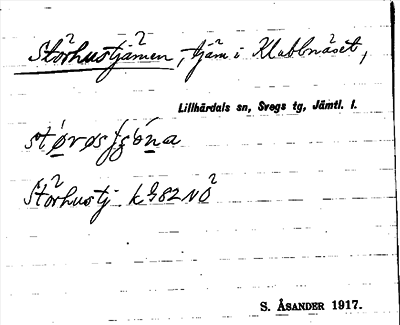 Storhustjärnen, tjärn i Klubbnäset,
Lillhärdals sn, Svegs tg, Jämtl. l.
Storhustj. k 982 NO
S. ÅSANDER 1917.